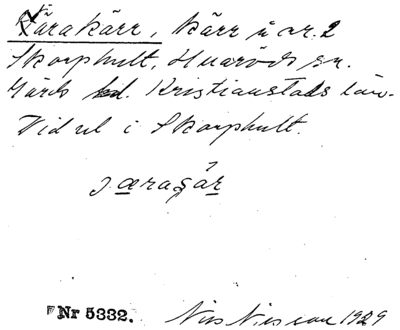 Tärakärr, kärr å nr. 2
Skorphult, Huaröds sn.
Gärds hd. Kristianstads län.
Vid ul i Skorphult.
æragår
Nr 5332. Nils Nilsson 1929